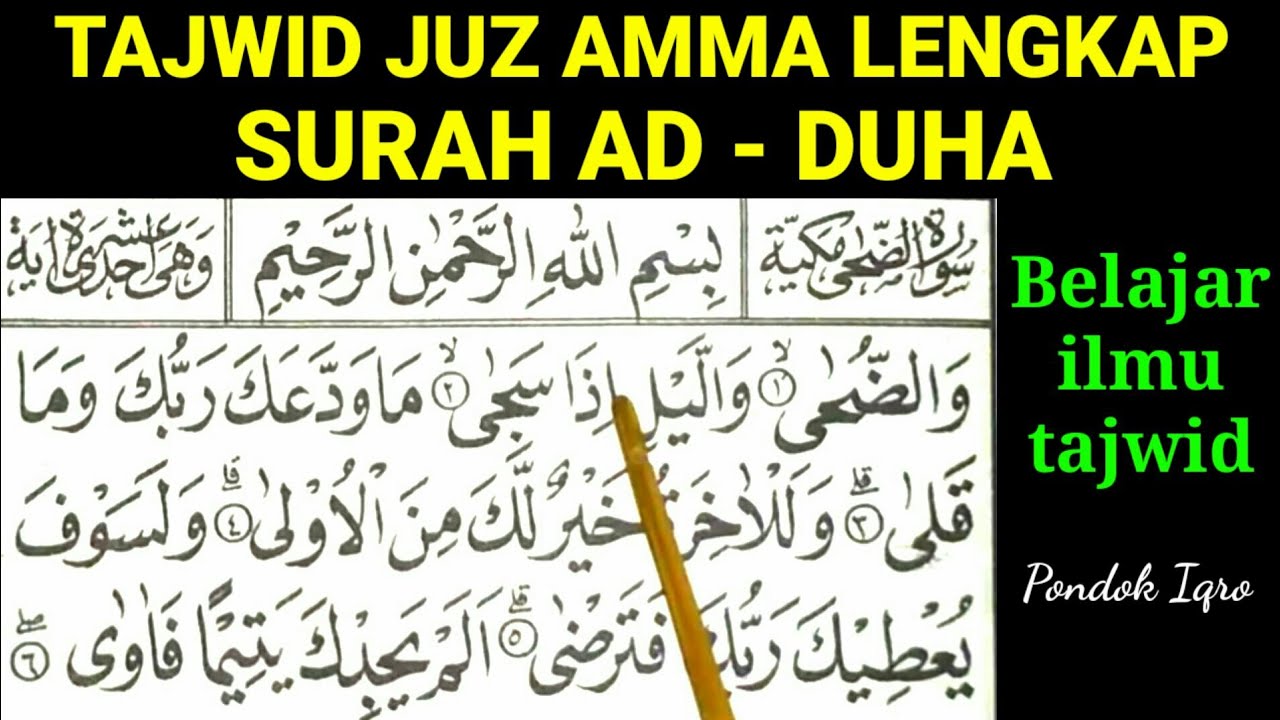 TAJWID JUZ AMMA LENGKAP
SURAH AD - DUHA
سُوْرَةُ الضُّحٰى مَكِّيَّة
بِسْمِ اللّٰهِ الرَّحْمٰنِ الرَّحِيْمِ
وَهِيَ اِحْدٰى عَشَرَةَ اٰيَة
وَالضُّحٰى ۙ﴿١﴾ وَالَّيْلِ اِذَا سَجٰى ۙ﴿٢﴾ مَا وَدَّعَكَ رَبُّكَ وَمَا
قَلٰى ۗ﴿٣﴾ وَلَلْاٰخِرَةُ خَيْرٌ لَّكَ مِنَ الْاُوْلٰى ۗ﴿٤﴾ وَلَسَوْفَ
يُعْطِيْكَ رَبُّكَ فَتَرْضٰى ۗ﴿٥﴾ اَلَمْ يَجِدْكَ يَتِيْمًا فَاٰوٰى ۖ﴿٦﴾
Belajar
ilmu
tajwid
Pondok Iqro